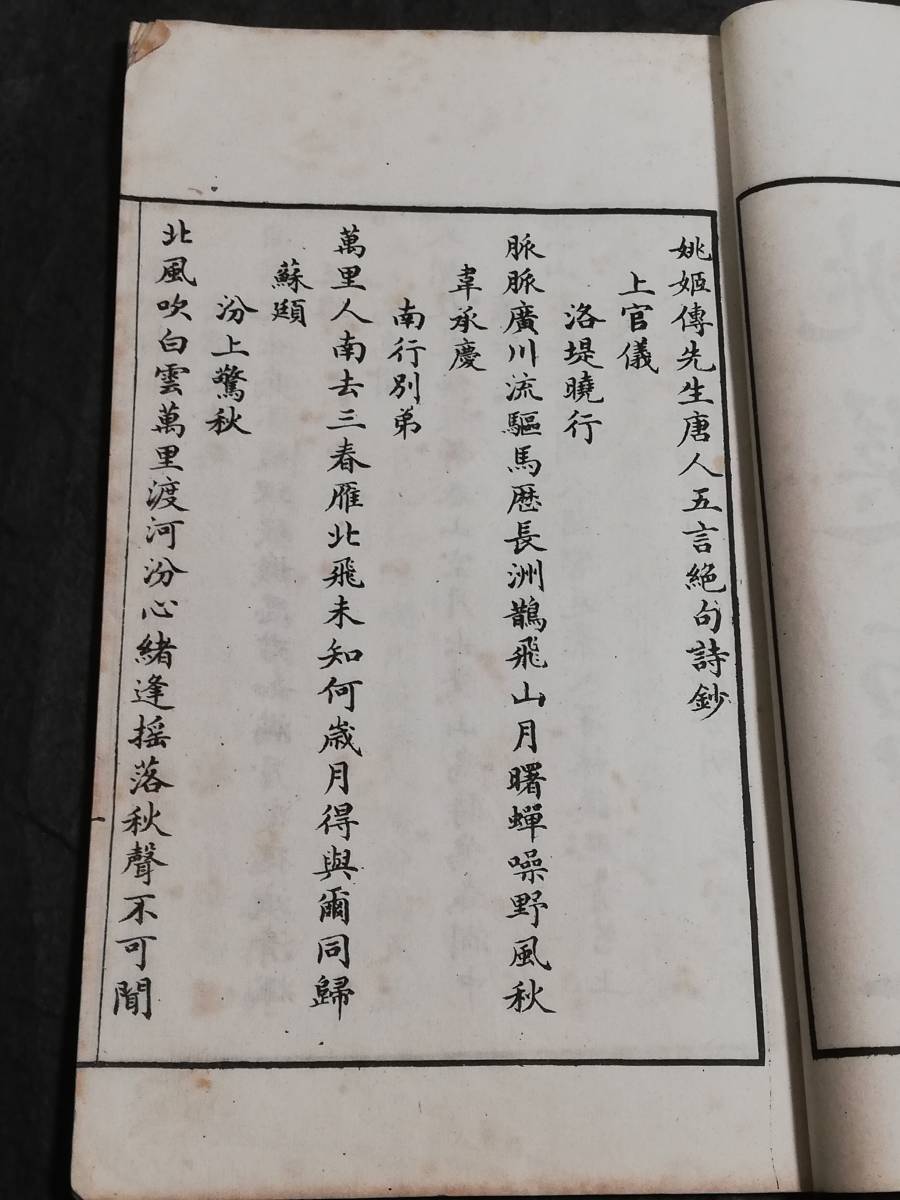 姚姬傳先生唐人五言絕句詩鈔
上官儀
洛堤曉行
脈脈廣川流驅馬歷長洲鵲飛山月曙蟬噪野風秋
韋承慶
南行別弟
萬里人南去三春雁北飛未知何歲月得與爾同歸
蘇頲
汾上驚秋
北風吹白雲萬里渡河汾心緒逢搖落秋聲不可聞